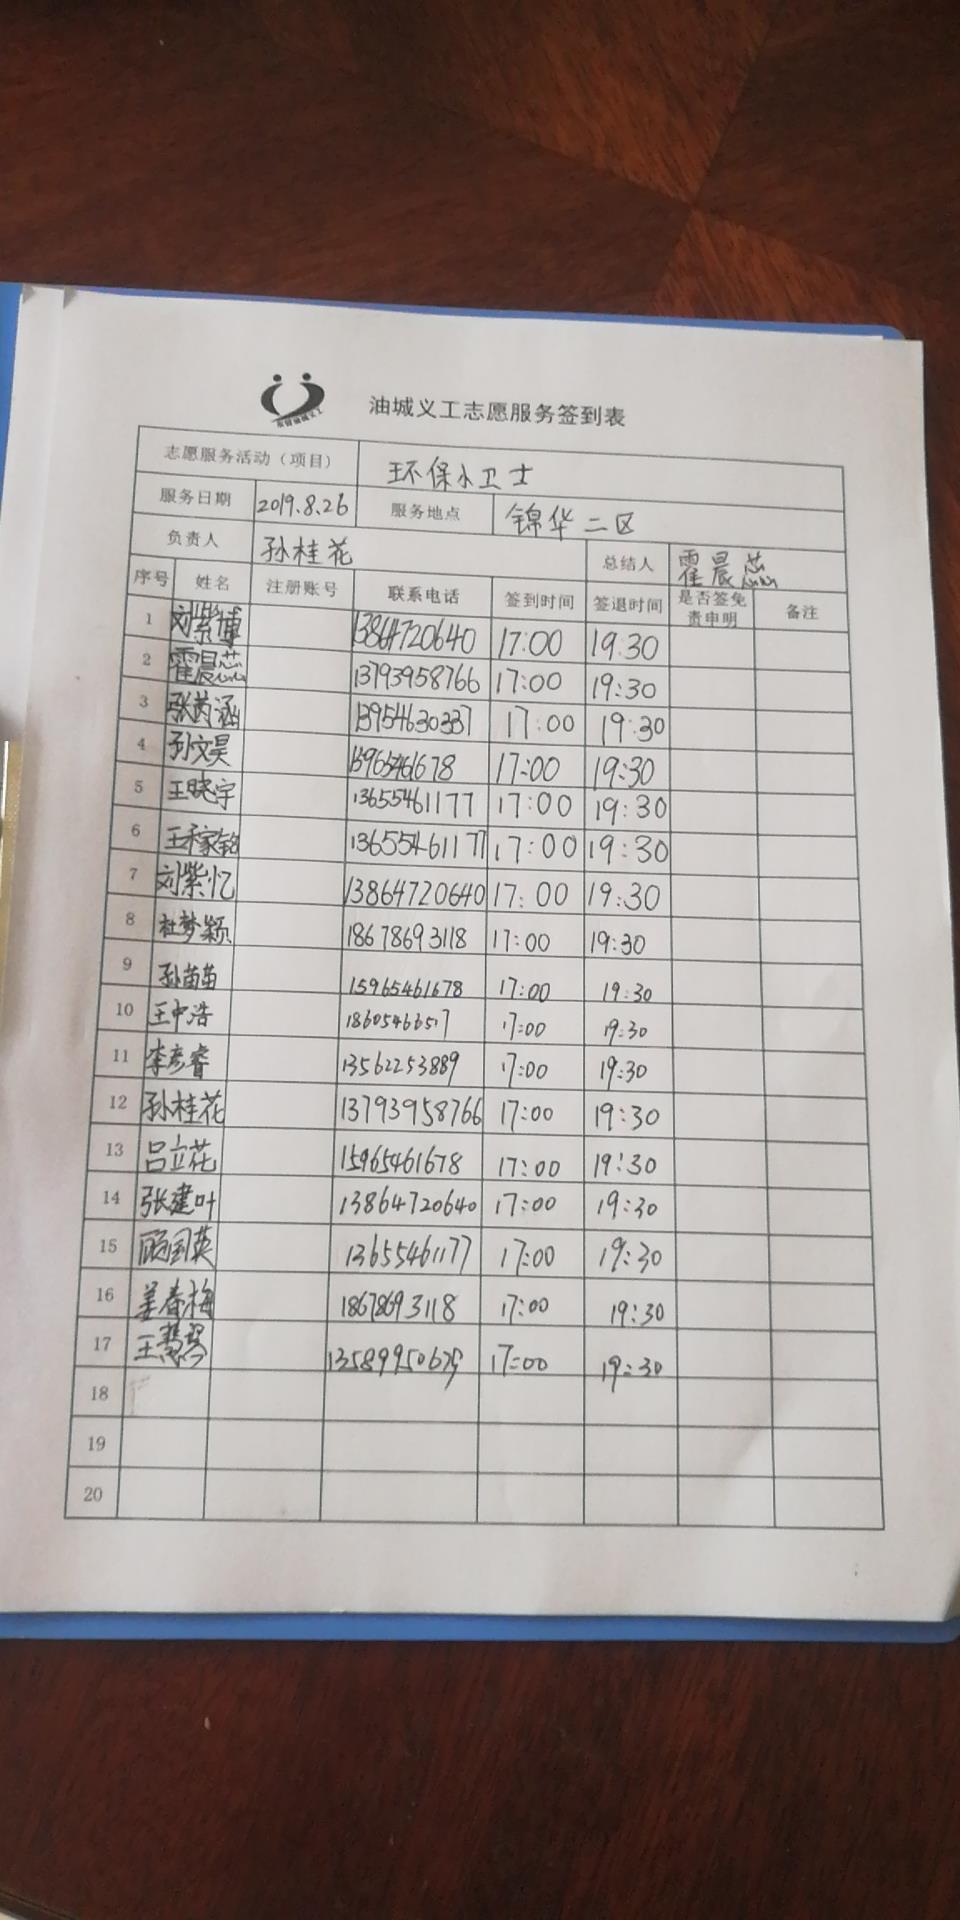 东营油城义工
油城义工志愿服务签到表
志愿服务活动（项目） 环保小卫士
服务日期 2019.8.26 服务地点 锦华二区
负责人 孙桂花 总结人 霍晨芯
序号 姓名 注册账号 联系电话 签到时间 签退时间 是否签免责申明 备注
1 刘紫博 13864720640 17:00 19:30
2 霍晨芯 13793958766 17:00 19:30
3 张芮涵 13954630337 17:00 19:30
4 孙文昊 15965461678 17:00 19:30
5 王晓宇 13655461177 17:00 19:30
6 王稼铭 13655461177 17:00 19:30
7 刘紫忆 13864720640 17:00 19:30
8 杜梦颖 18678693118 17:00 19:30
9 孙苗苗 15965461678 17:00 19:30
10 王中浩 18605466517 17:00 19:30
11 李彦睿 13562253889 17:00 19:30
12 孙桂花 13793958766 17:00 19:30
13 吕立花 15965461678 17:00 19:30
14 张建叶 13864720640 17:00 19:30
15 顾国英 13655461177 17:00 19:30
16 姜春梅 18678693118 17:00 19:30
17 王慧琴 17:00 19:30
18
19
20